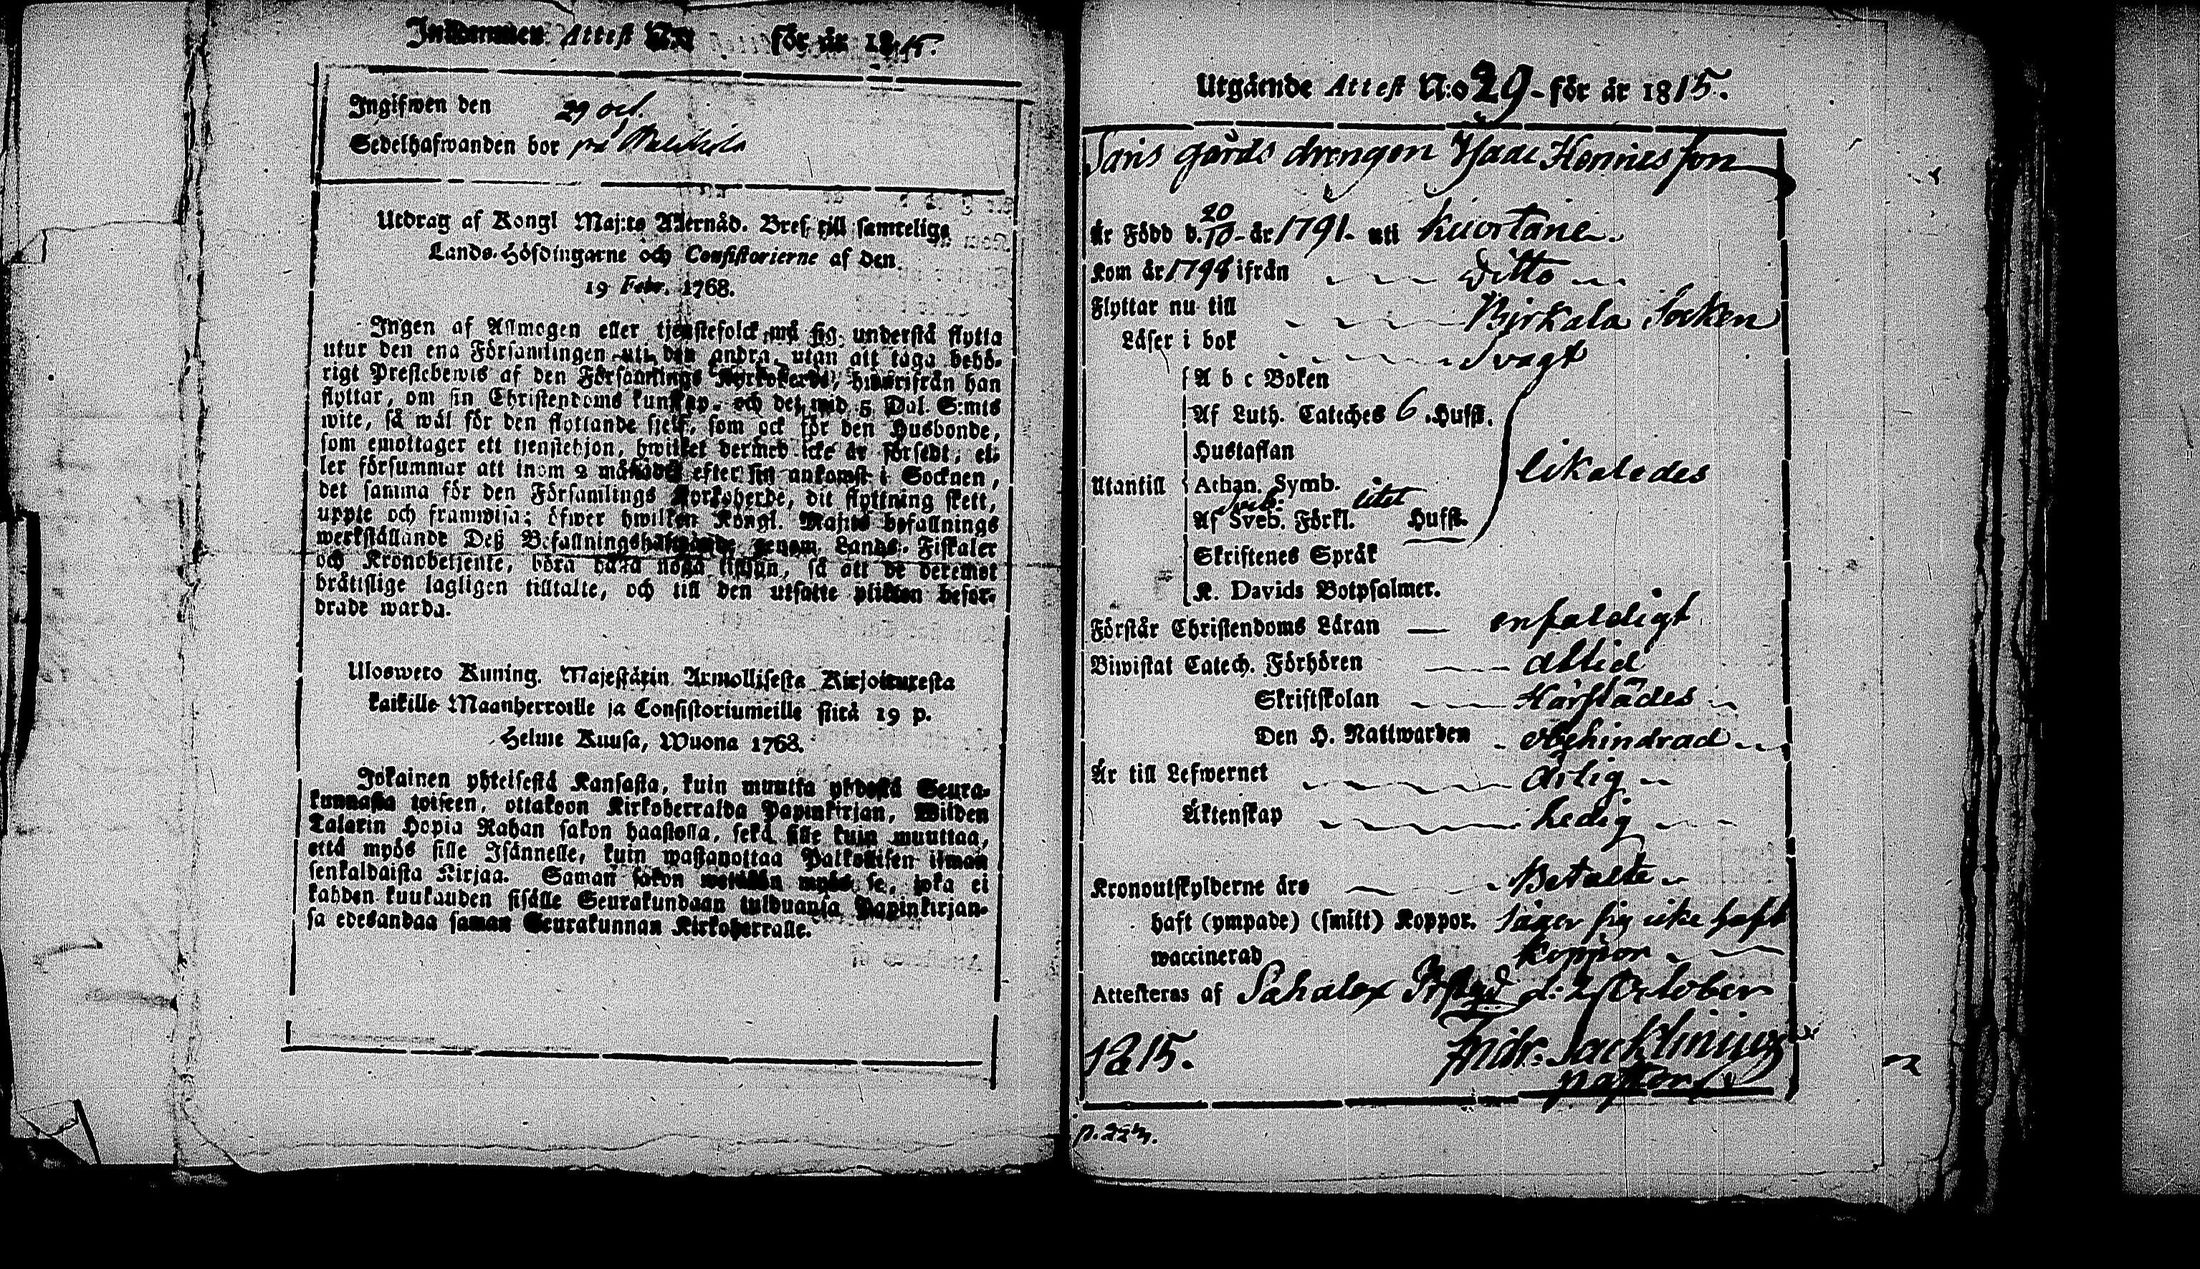 Inkommen Attest N:o för år 1815.
Ingifwen den 29 oct.
Sedelhafwanden bor på
Utdrag af Kongl Maj:ts Allernåd. Bref till samtelige
Lands-Höfdingarne och Consistorierne af den
19 Febr. 1768.
Ingen af Allmogen eller tjenstefolck må sig understå flytta
utur den ena Församlingen uti den andra, utan att taga behö-
rigt Prestebewis af den Församlings Kyrkoherde, hwarifrån han
flyttar, om sin Christendoms kunskap, och det wid 5 Dal. S:mts
wite, så wäl för den flyttande sjelf, som ock för den Husbonde,
som emottager ett tjenstehjon, hwilket dermed icke är försedt, el-
ler försummar att inom 2 månader efter sin ankomst i Socknen,
det samma för den Församlings Kyrkoherde, dit flyttning skett,
uppte och framwisa; öfwer hwilken Kongl. Maj:ts befallnings
werkställande Deß Befallningshafwande genom Lands-Fiskaler
och Kronobetjente, böra hafa noga tillsyn, så att de deremot
bråttslige lagligen tilltalte, och till den utsatte plikten befor-
drade warda.
Ulosweto Kuning. Majestätin Armollisesta Kirjoituxesta
kaikille Maanherroille ja Consistoriumeille siitä 19 p.
Helme Kuusa, Wuona 1768.
Jokainen yhteisestä Kansasta, kuin muutta yhdestä Seura-
kunnasta toiseen, ottakoon Kirkoherralda Papinkirjan, Wiiden
Talarin Hopia Rahan sakon haastolla, sekä sille kuin muuttaa,
että myös sille Isännelle, kuin wastanottaa Palkollisen ilman
senkaldaista Kirjaa. Saman sakon wetäkön myös se, joka ei
kahden kuukauden sisälle Seurakundaan tulduansa Papinkirjan-
sa edesandaa saman Seurakunnan Kirkoherralle.
Utgående Attest N:o 29 för år 1815.
Saris gårds drengen Isaac Hennesson
Är Född d. 20/10 år 1791 uti Kuortane
Kom år 1798 ifrån Ditto
Flyttar nu till Birkala Socken
Läser i bok Svagt
A b c Boken
Af Luth. Cateches 6 Hufst.
Hustaflan
Utantill Athan. Symb. likaledes
Af Sveb. Förkl. litet Hufst.
Skriftenes Språk
K. Davids Botpsalmer.
Förstår Christendoms Läran enfaldigt
Biwistat Catech. Förhören alltid
Skriftskolan Härstädes
Den H. Nattwarden obehindrad
Är till Lefwernet ärlig
Äktenskap ledig
Kronoutskylderne äro Betalte
haft (ympade) (smitt) Koppor. Säger sig icke haft
waccinerad koppor
Attesteras af Sahalax d: October
1815. Fridr:
pastor